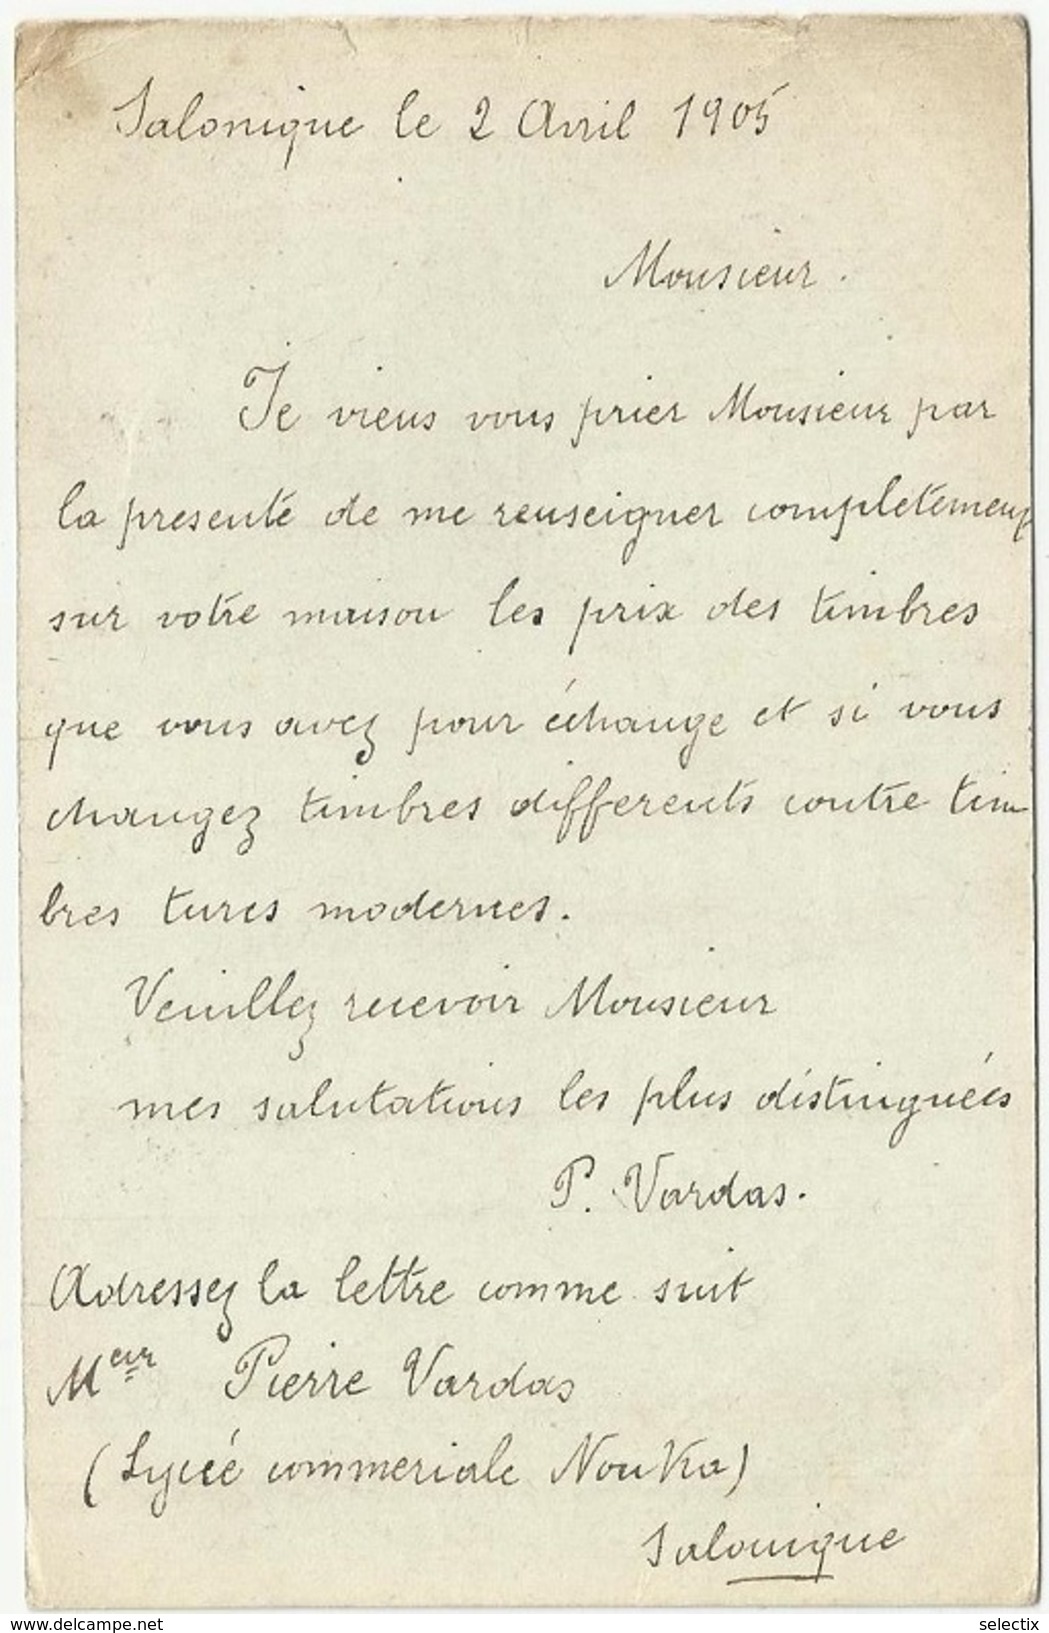 Salonique le 2 Avril 1905
Monsieur.
Je viens vous prier Monsieur par
la presente de me renseigner completement
sur votre maison les prix des timbres
que vous avez pour échange et si vous
changez timbres differents contre tim
bres turcs modernes.
Veuillez recevoir Monsieur
mes salutations les plus distinguées
P. Vardas.
Adressez la lettre comme suit
Meur Pierre Vardas
(Lycée commerciale Nouka)
Salonique
www.delcampe.net
selectix